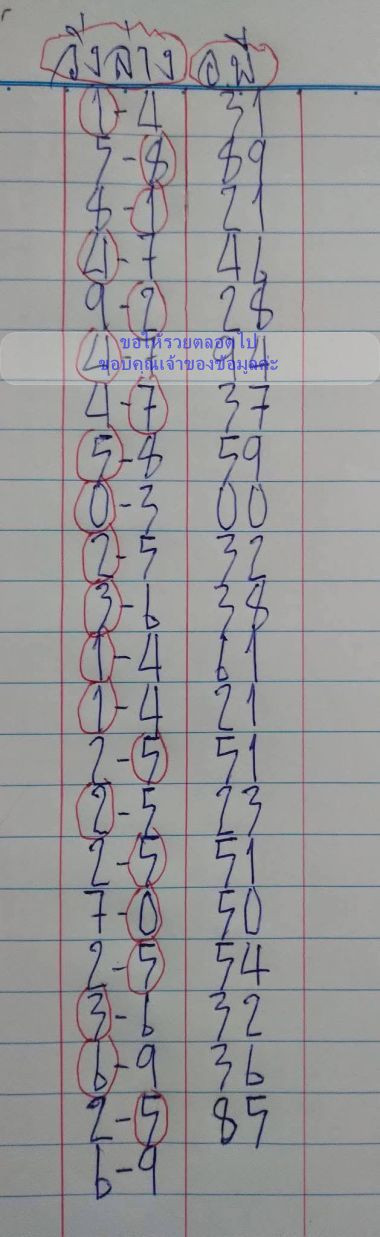 วิ่งล่าง อ.พี่
1-4 31
5-8 89
8-1 21
4-7 46
9-2 28
4-7 41
ขอให้รวยตลอดไป
ขอบคุณเจ้าของข้อมูลค่ะ
4-7 37
5-8 59
0-3 00
2-5 32
3-6 38
1-4 61
1-4 21
2-5 51
2-5 23
2-5 51
7-0 50
2-5 54
3-6 32
6-9 36
2-5 85
6-9